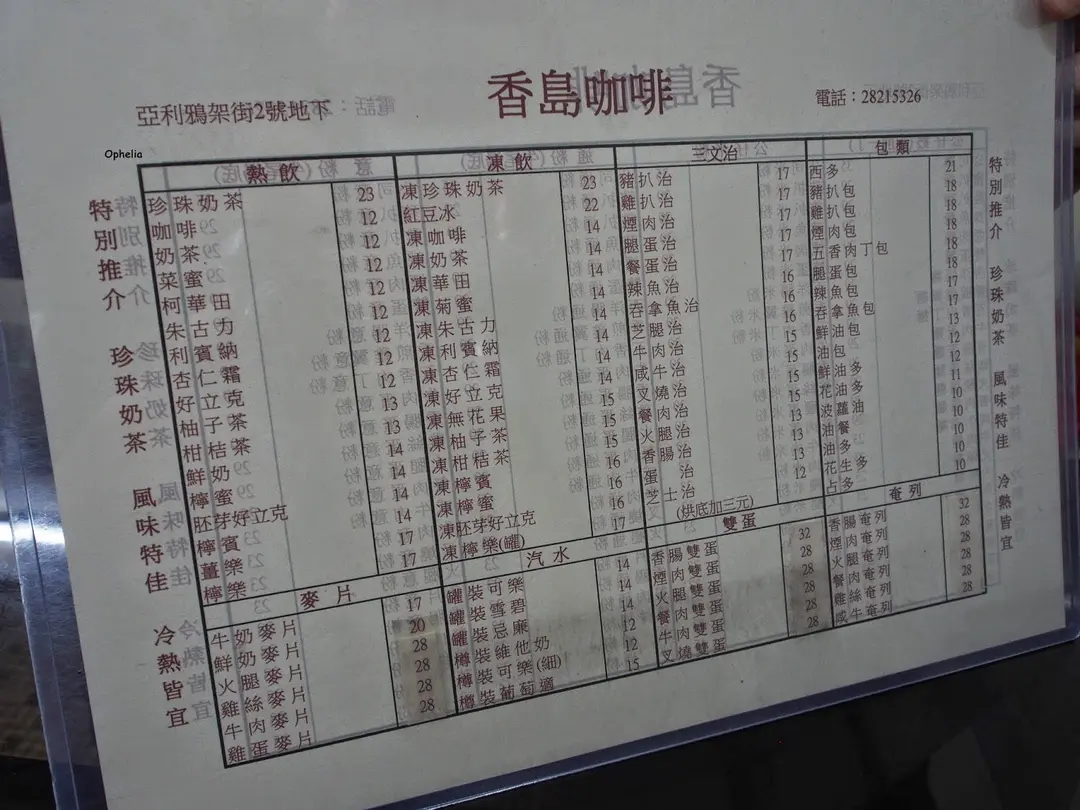 香島咖啡
亞利鴉架街2號地下
電話：28215326
Ophelia
特別推介 珍珠奶茶 風味特佳 冷熱皆宜
熱飲
珍珠奶茶 23
咖啡 12
奶茶 12
菜蜜 12
柯華田 12
朱古力 12
利賓納 12
杏仁霜 12
好立克 12
柚子茶 13
柑桔茶 13
鮮奶 14
檸蜜 14
胚芽好立克 14
檸賓 14
薑樂 17
檸樂 17
麥片
牛奶麥片 17
鮮奶麥片 20
火腿麥片 28
雞絲麥片 28
牛肉麥片 28
雞蛋麥片 28
凍飲
凍珍珠奶茶 23
紅豆冰 22
凍咖啡 14
凍奶茶 14
凍華田 14
凍菊蜜 14
凍朱古力 14
凍利賓納 14
凍杏仁霜 14
凍好立克 14
凍無花果 15
凍柚子茶 15
凍柑桔茶 15
凍檸賓 16
凍檸蜜 16
凍胚芽好立克 16
凍檸樂(罐) 17
汽水
罐裝可樂 14
罐裝雪碧 14
罐裝忌廉 14
樽裝維他奶 12
樽裝可樂(細) 12
樽裝葡萄適 15
三文治
豬扒治 17
雞扒治 17
煙肉治 17
腿蛋治 17
餐蛋治 17
辣魚治 16
吞拿魚治 16
芝腿治 16
牛肉治 15
咸牛治 15
叉燒治 15
餐肉治 15
火腿治 13
香腸治 13
蛋治 13
芝士治 12
(烘底加三元)
雙蛋
香腸雙蛋 32
煙肉雙蛋 28
火腿雙蛋 28
餐肉雙蛋 28
牛肉雙蛋 28
叉燒雙蛋 28
包類
西多 21
豬扒包 18
雞扒包 18
煙肉包 18
五香肉丁包 18
腿蛋包 18
辣魚包 17
吞拿魚包 17
鮮油包 13
油包 12
鮮油多 12
花油多 11
波蘿油 10
油餐 10
油多 10
花生多 10
占多 10
奄列
香腸奄列 32
煙肉奄列 28
火腿奄列 28
餐肉奄列 28
雞絲奄列 28
咸牛奄列 28
特別推介 珍珠奶茶 風味特佳 冷熱皆宜